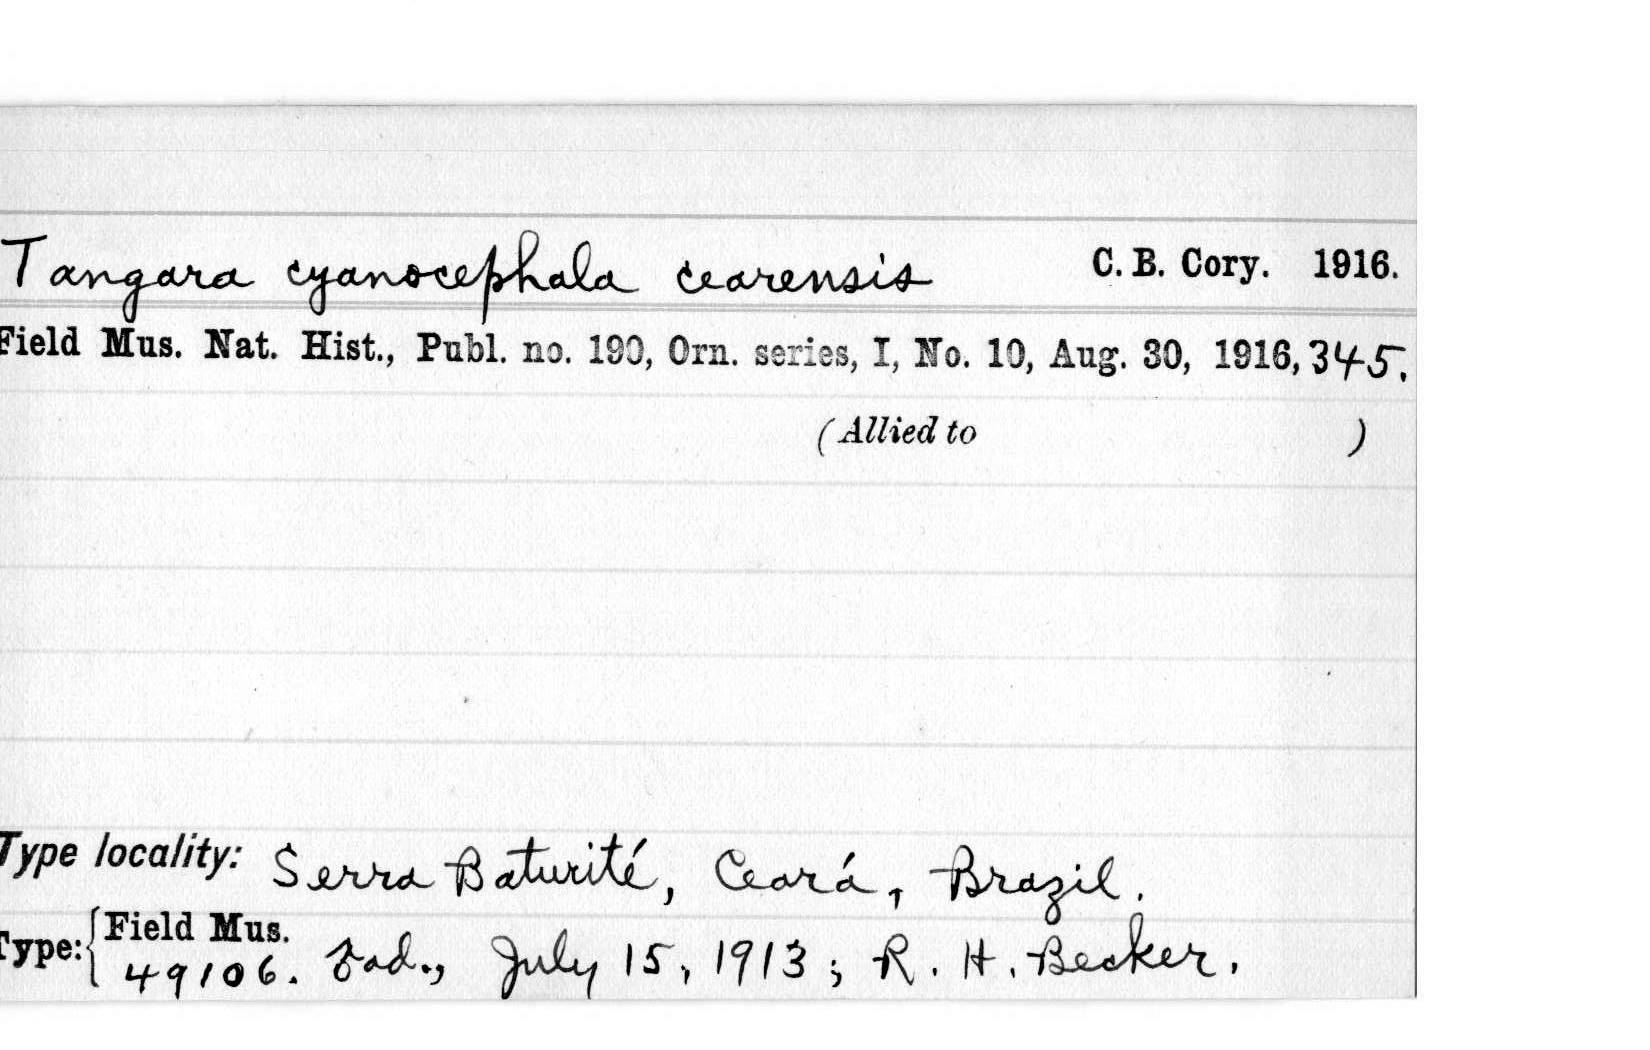 Tangara cyanocephala cearensis C. B. Cory. 1916.
Field Mus. Nat. Hist., Publ. no. 190, Orn. series, I, No. 10, Aug. 30, 1916, 345.
(Allied to )
Type locality: Serra Baturité, Ceará, Brazil.
Type: { Field Mus.
49106. ad., July 15, 1913; R. H. Becker.